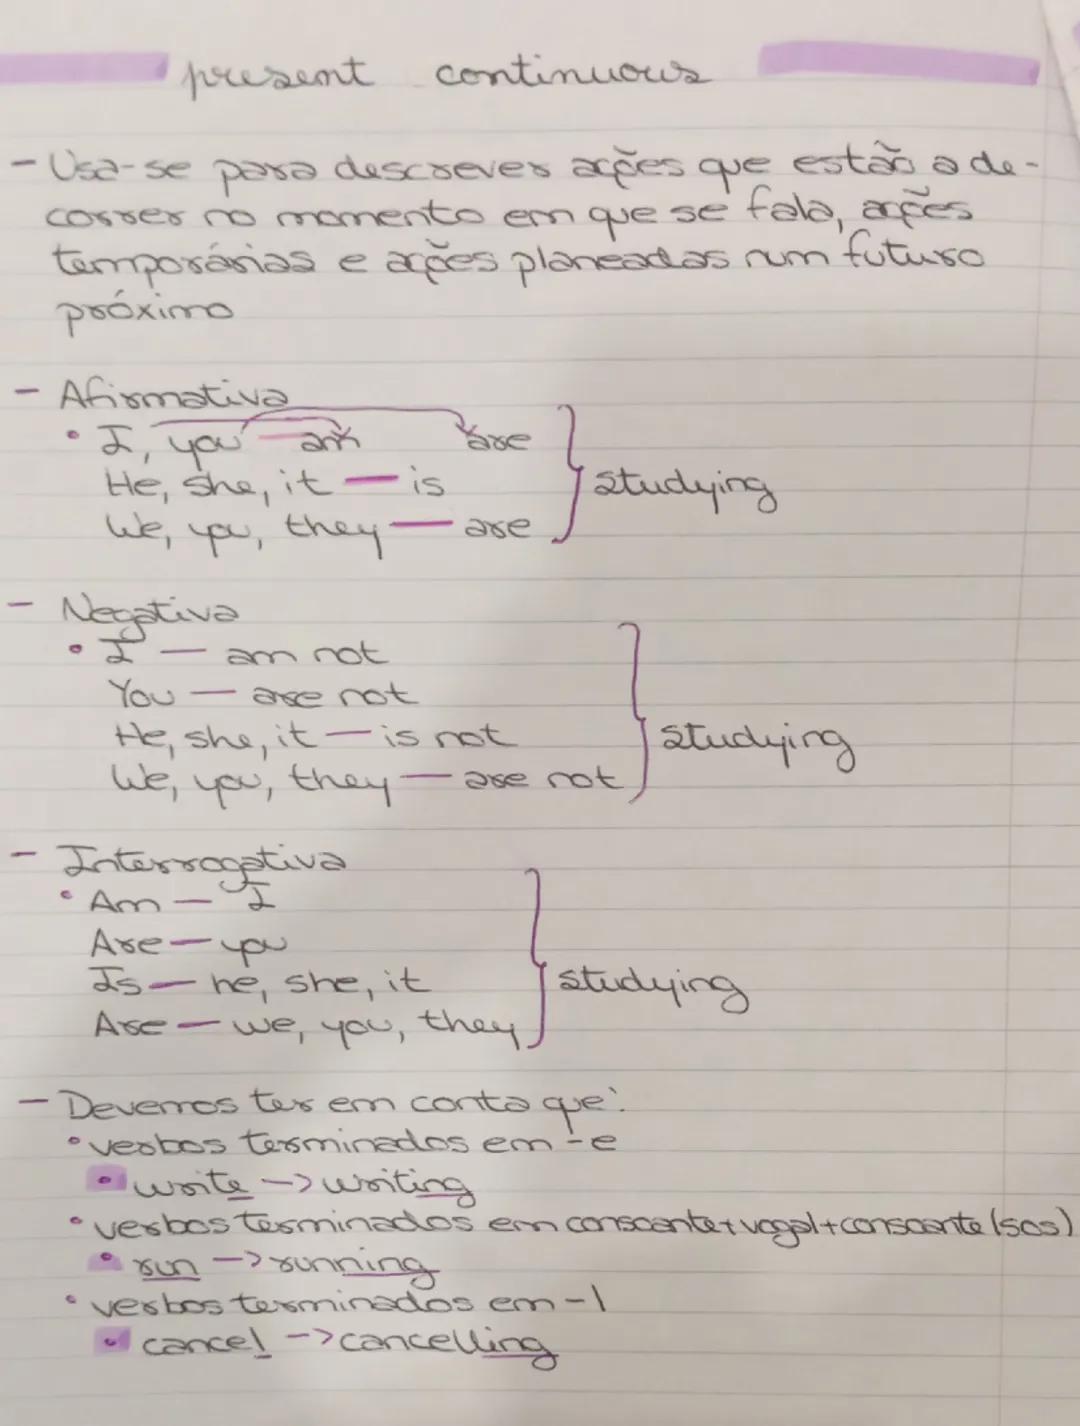 present continuous
- Usa-se para descrever ações que estão a de-
correr no momento em que se fala, ações
temporárias e ações planeadas num futuro
próximo
- Afirmativa
• I, you — am are
He, she, it — is
We, you, they — are
studying
- Negativa
• I — am not
You — are not
He, she, it — is not
We, you, they — are not
studying
- Interrogativa
• Am — I
Are — you
Is — he, she, it
Are — we, you, they
studying
- Devemos ter em conta que:
• verbos terminados em -e
• write -> writing
• verbos terminados em consoante+vogal+consoante (sos)
• run -> running
• verbos terminados em -l
• cancel -> cancelling